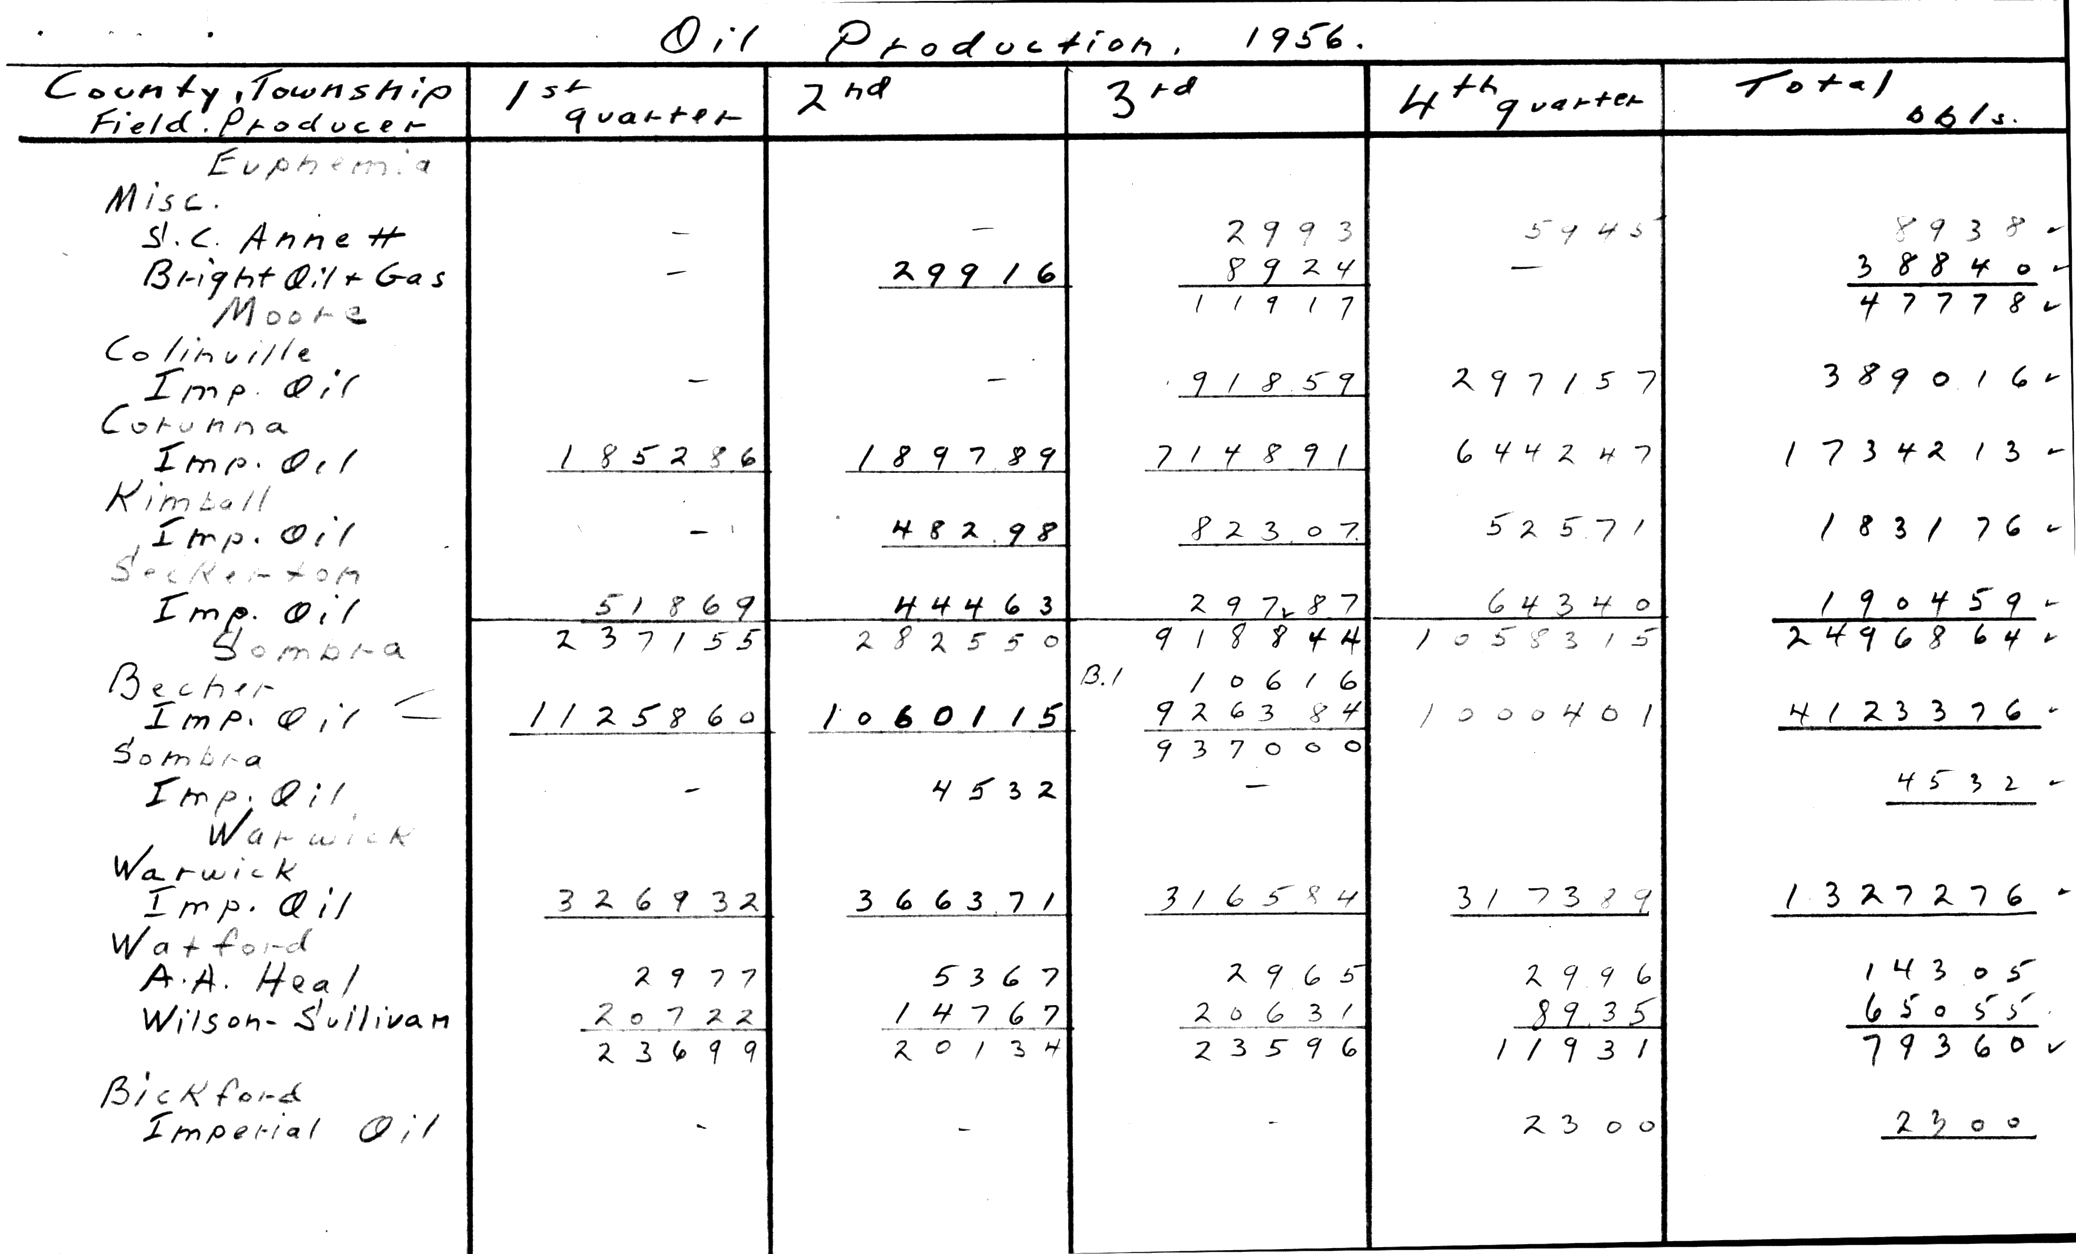 Oil Production. 1956.
County, Township Field. Producer 1st quarter 2nd 3rd 4th quarter Total bbls.
Euphemia
Misc.
S.C. Annett - - 2993 5945 8938 ✓
Bright Oil + Gas - 29916 8924 - 38840 ✓
Moore 11917 47778 ✓
Colinville
Imp. Oil - - 91859 297157 389016 ✓
Corunna
Imp. Oil 185286 189789 714891 644247 1734213 ✓
Kimball
Imp. Oil - 48298 82307 52571 183176 ✓
Seckerton
Imp. Oil 51869 44463 29787 64340 190459 ✓
Sombra 237155 282550 918844 1058315 2496864 ✓
Becher B.1 10616
Imp. Oil 1125860 1060115 926384 1000401 4123376
Sombra 937000
Imp. Oil - 4532 - 4532 ✓
Warwick
Warwick
Imp. Oil 326932 366371 316584 317389 1327276
Watford
A.A. Heal 2977 5367 2965 2996 14305
Wilson-Sullivan 20722 14767 20631 8935 65055
23699 20134 23596 11931 79360 ✓
Bickford
Imperial Oil - - - 2300 2300